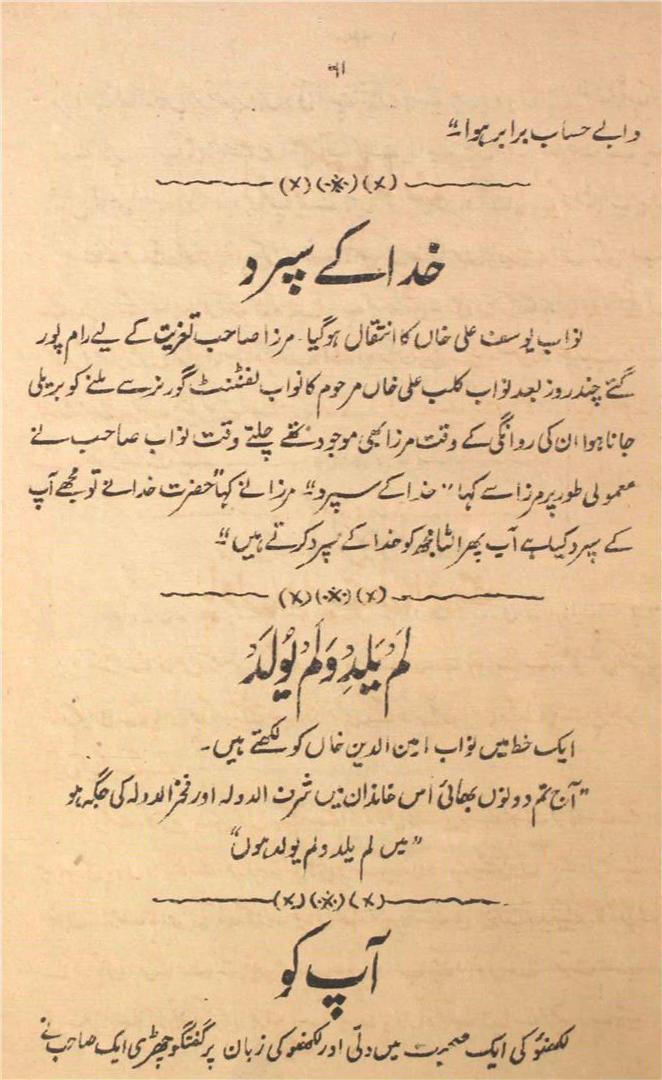 ۴۱
دابے حساب برابر ہوا۔"
خدا کے سپرد
نواب یوسف علی خاں کا انتقال ہوگیا۔ مرزا صاحب تعزیت کے لیے رام پور
گئے چند روز بعد نواب کلب علی خاں مرحوم کا نواب لفٹننٹ گورنر سے ملنے کو بریلی
جانا ہوا ان کی روانگی کے وقت مرزا بھی موجود تھے چلتے وقت نواب صاحب نے
معمولی طور پر مرزا سے کہا "خدا کے سپرد" مرزا نے کہا "حضرت خدا نے تو مجھے آپ
کے سپرد کیا ہے آپ پھر الٹا مجھ کو خدا کے سپرد کرتے ہیں"۔
لَم یَلِد وَلَم یُولَد
ایک خط میں نواب امین الدین خاں کو لکھتے ہیں۔
"آج تم دونوں بھائی اس خاندان میں شرف الدولہ اور فخر الدولہ کی جگہ ہو
"میں لم یلد ولم یولد ہوں"
آپ کو
لکھنؤ کی ایک صحبت میں دلّی اور لکھنؤ کی زبان پر گفتگو چھڑی ایک صاحب نے